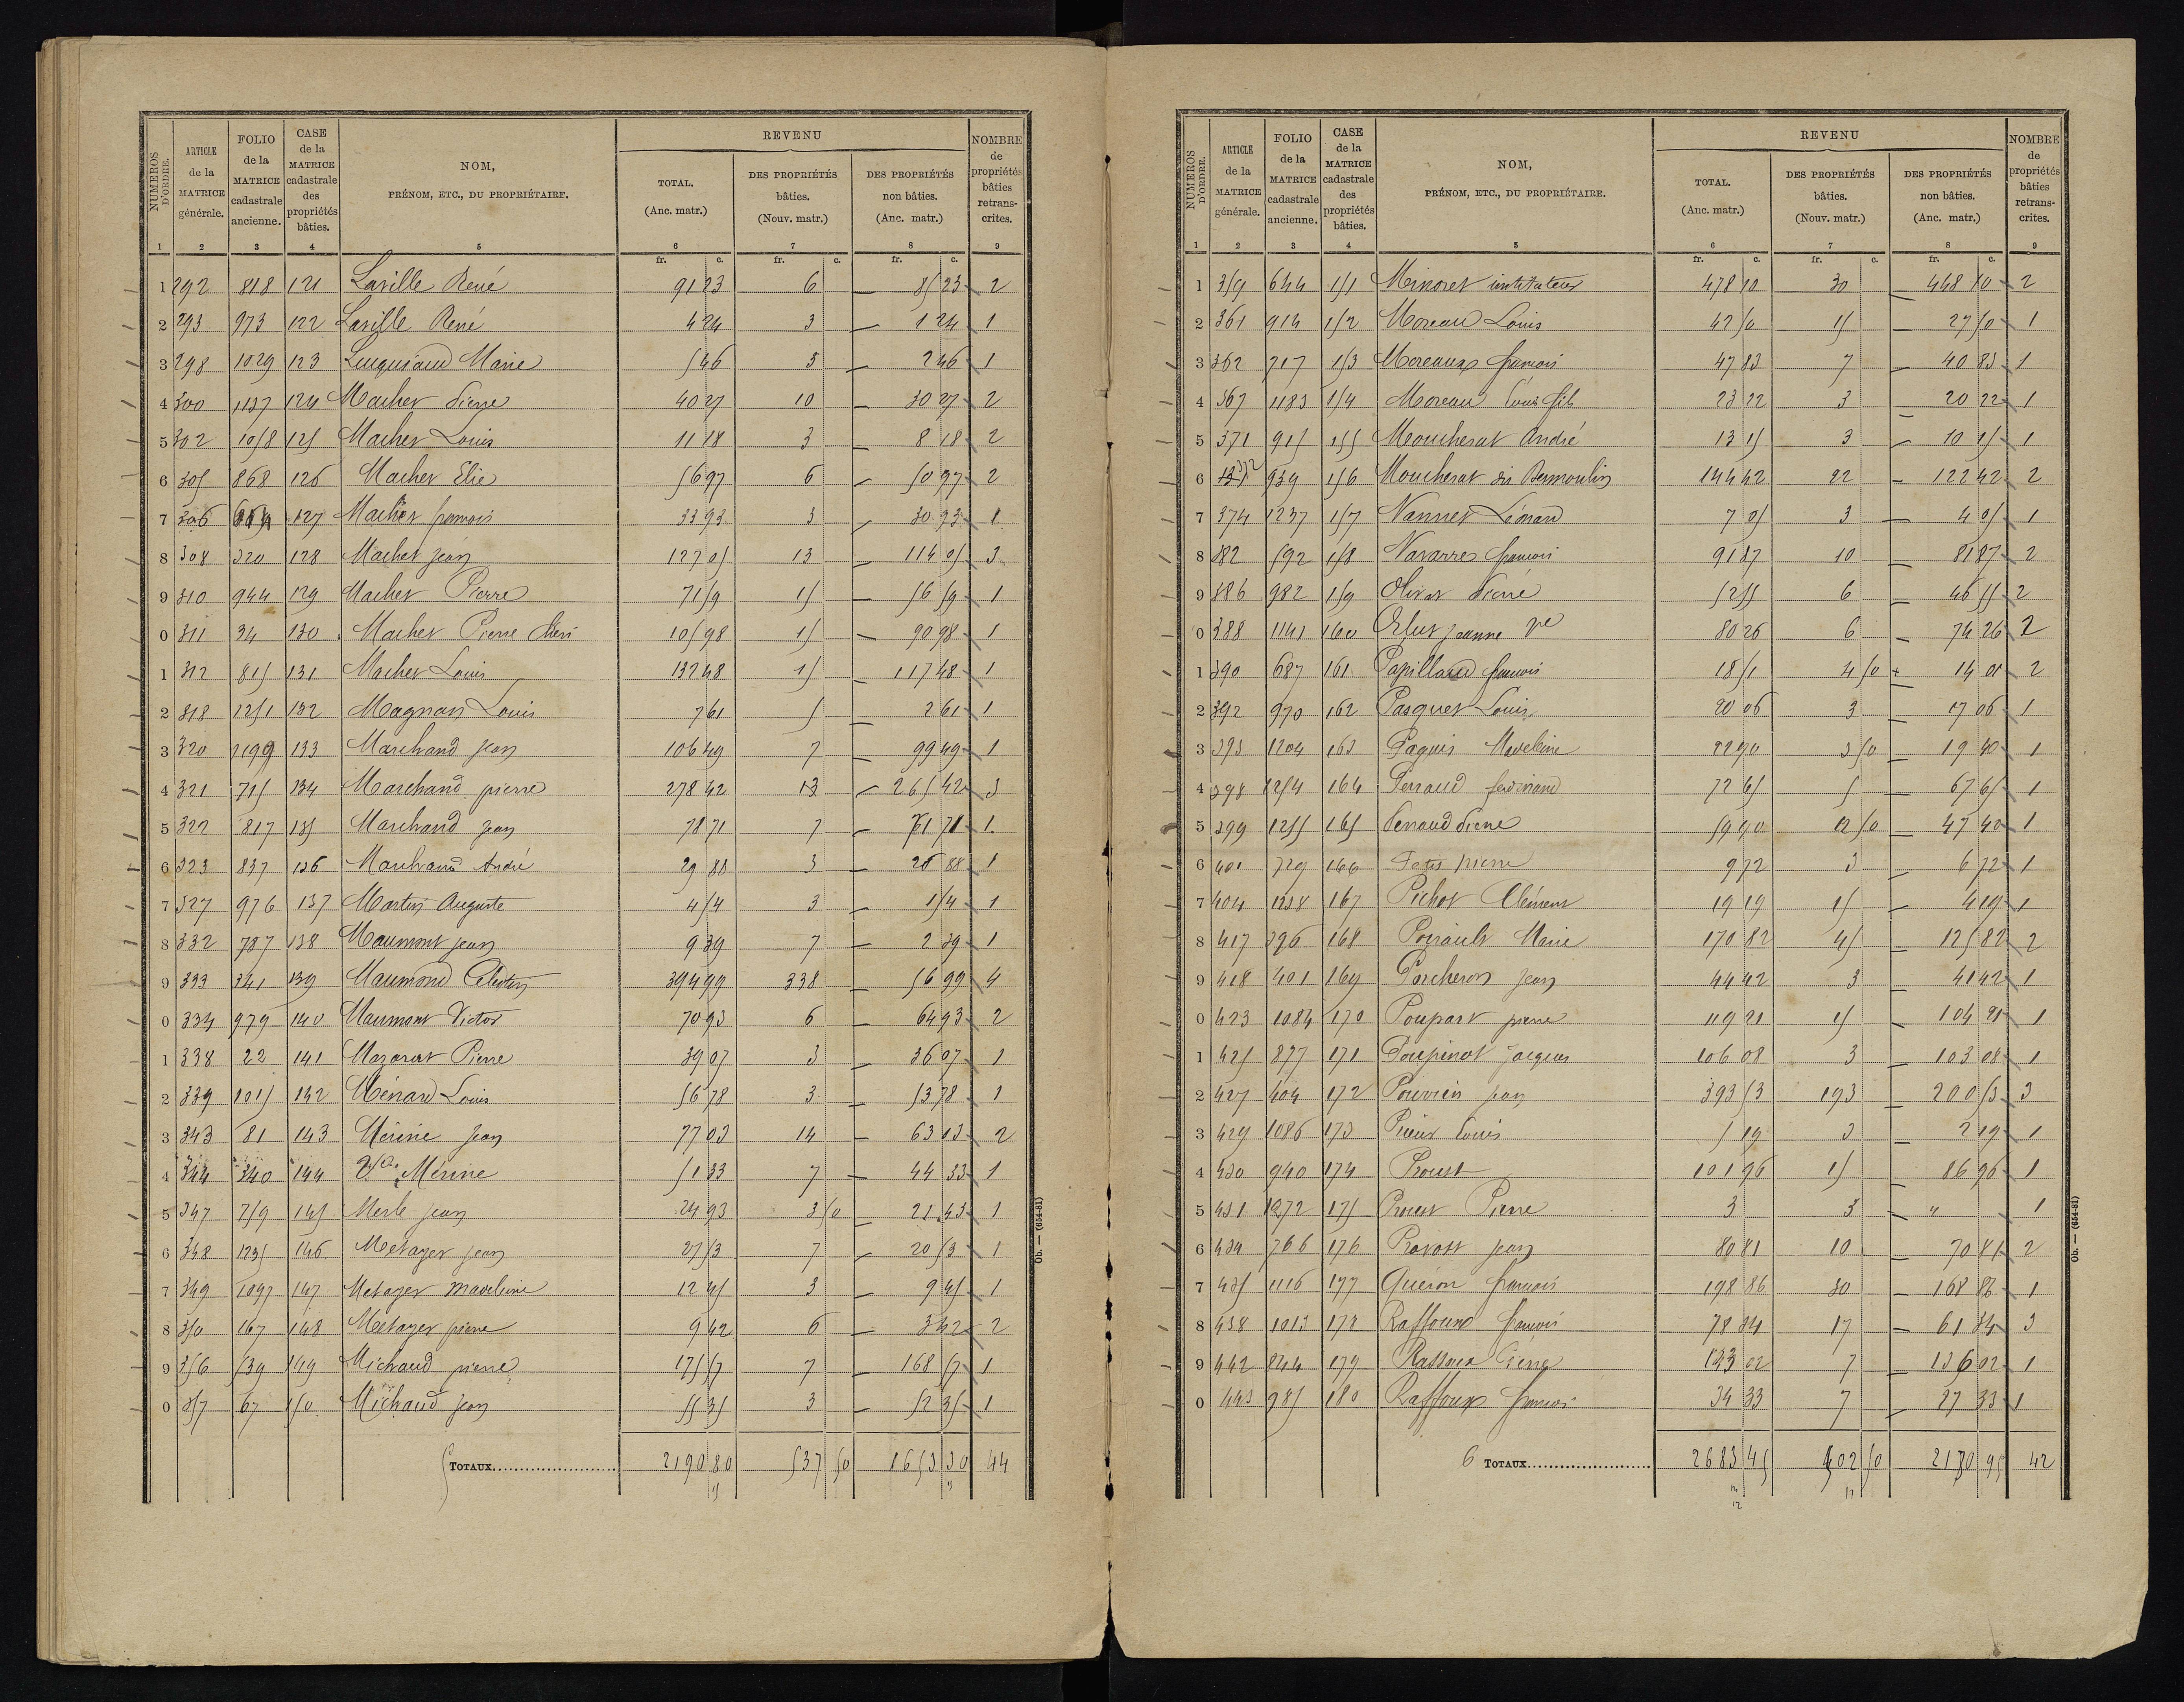 NUMÉROS D'ORDRE. | ARTICLE de la MATRICE générale. | FOLIO de la MATRICE cadastrale ancienne. | CASE de la MATRICE cadastrale des propriétés bâties. | NOM, PRÉNOM, ETC., DU PROPRIÉTAIRE. | REVENU | NOMBRE de propriétés bâties retranscrites.
TOTAL. (Anc. matr.) | DES PROPRIÉTÉS bâties. (Nouv. matr.) | DES PROPRIÉTÉS non bâties. (Anc. matr.)
1 2 3 4 5 6 7 8 9
fr. c. fr. c. fr. c.
1 292 818 121 Laville René 91 23 6 — 85 23 2
2 293 973 122 Laville René 4 24 3 — 1 24 1
3 298 1029 123 Luquiaud Marie 5 46 3 — 2 46 1
4 300 1137 124 Machet Pierre 40 27 10 — 30 27 2
5 302 1058 125 Machet Louis 11 18 3 — 8 18 2
6 305 868 126 Machet Elie 56 97 6 — 50 97 2
7 306 127 Machet françois 33 93 3 — 30 93 1
8 308 320 128 Machet jean 127 05 13 — 114 05 3
9 310 944 129 Machet Pierre 71 59 15 — 56 59 1
0 311 34 130 Machet Pierre Chéri 105 98 15 — 90 98 1
1 312 815 131 Machet Louis 132 48 15 — 117 48 1
2 318 1251 132 Magnan Louis 7 61 5 — 2 61 1
3 320 1199 133 Marchand jean 106 49 7 — 99 49 1
4 321 715 134 Marchand pierre 278 42 13 — 265 42 3
5 322 817 135 Marchand jean 78 71 7 — 71 71 1
6 323 837 136 Marchand André 29 88 3 — 26 88 1
7 327 976 137 Martin Auguste 4 54 3 — 1 54 1
8 332 787 138 Maumont jean 9 39 7 — 2 39 1
9 333 341 139 Maumond Célestin 394 99 338 — 56 99 4
0 334 979 140 Maumont Victor 70 93 6 — 64 93 2
1 338 22 141 Mazarat Pierre 39 07 3 — 36 07 1
2 339 1015 142 Ménard Louis 56 78 3 — 53 78 1
3 343 81 143 Mérine jean 77 03 14 — 63 03 2
4 344 340 144 Vve Mérine 51 33 7 — 44 33 1
5 347 759 145 Merle jean 24 93 3 50 — 21 43 1
6 348 1235 146 Metayer jean 27 53 7 — 20 53 1
7 349 1097 147 Metayer Madeleine 12 45 3 — 9 45 1
8 350 167 148 Metayer pierre 9 42 6 — 3 42 2
9 356 539 149 Michaud pierre 175 57 7 — 168 57 1
0 357 67 150 Michaud jean 55 35 3 — 52 35 1
5 TOTAUX 2190 80 537 50 1653 30 44
Ob. — (654-81)
NUMÉROS D'ORDRE. | ARTICLE de la MATRICE générale. | FOLIO de la MATRICE cadastrale ancienne. | CASE de la MATRICE cadastrale des propriétés bâties. | NOM, PRÉNOM, ETC., DU PROPRIÉTAIRE. | REVENU | NOMBRE de propriétés bâties retranscrites.
TOTAL. (Anc. matr.) | DES PROPRIÉTÉS bâties. (Nouv. matr.) | DES PROPRIÉTÉS non bâties. (Anc. matr.)
1 2 3 4 5 6 7 8 9
fr. c. fr. c. fr. c.
1 359 644 151 Minoret instituteur 478 10 30 — 448 10 2
2 361 914 152 Moreau Louis 42 50 15 — 27 50 1
3 362 717 153 Moreaux françois 47 83 7 — 40 83 1
4 367 1183 154 Moreau Louis fils 23 22 3 — 20 22 1
5 371 915 155 Moucherat André 13 15 3 — 10 15 1
6 372 939 156 Moucherat dit Bermoulin 144 42 22 — 122 42 2
7 374 1237 157 Nannet Léonard 7 05 3 — 4 05 1
8 382 592 158 Navarre françois 91 87 10 — 81 87 2
9 386 982 159 Olivet Pierre 52 55 6 — 46 55 2
0 388 1141 160 jeanne ve 80 26 6 — 74 26 2
1 390 687 161 Papillaud françois 18 51 4 50 14 01 2
2 392 970 162 Pasquet Louis 20 06 3 — 17 06 1
3 393 1204 163 Paquis Madeleine 22 90 3 50 — 19 40 1
4 398 1254 164 Perraud ferdinand 72 65 5 — 67 65 1
5 399 1255 165 Perraud Pierre 59 90 12 50 — 47 40 1
6 401 729 166 pierre 9 72 3 — 6 72 1
7 404 1238 167 Pichot Clément 19 19 15 — 4 19 1
8 417 396 168 Poirault Marie 170 82 45 — 125 82 2
9 418 401 169 Porcheron jean 44 42 3 41 42 1
0 423 1084 170 Poupart pierre 119 21 15 — 104 21 1
1 425 877 171 Poupinot Jacques 106 08 3 — 103 08 1
2 427 404 172 jean 393 53 193 200 53 3
3 429 1086 173 Prieur Louis 5 19 3 2 19 1
4 430 940 174 Proust 101 96 15 — 86 96 1
5 431 1272 175 Proust Pierre 3 3 — " 1
6 434 766 176 Provost jean 80 81 10 — 70 81 2
7 435 1116 177 Quéron françois 198 86 30 — 168 86 1
8 438 1013 178 Raffoux françois 78 34 17 — 61 34 3
9 442 844 179 Raffoux Pierre 143 02 7 — 136 02 1
0 443 985 180 Raffoux françois 34 33 7 — 27 33 1
6 TOTAUX 2683 45 502 50 2180 95 42
Ob. — (654-81)